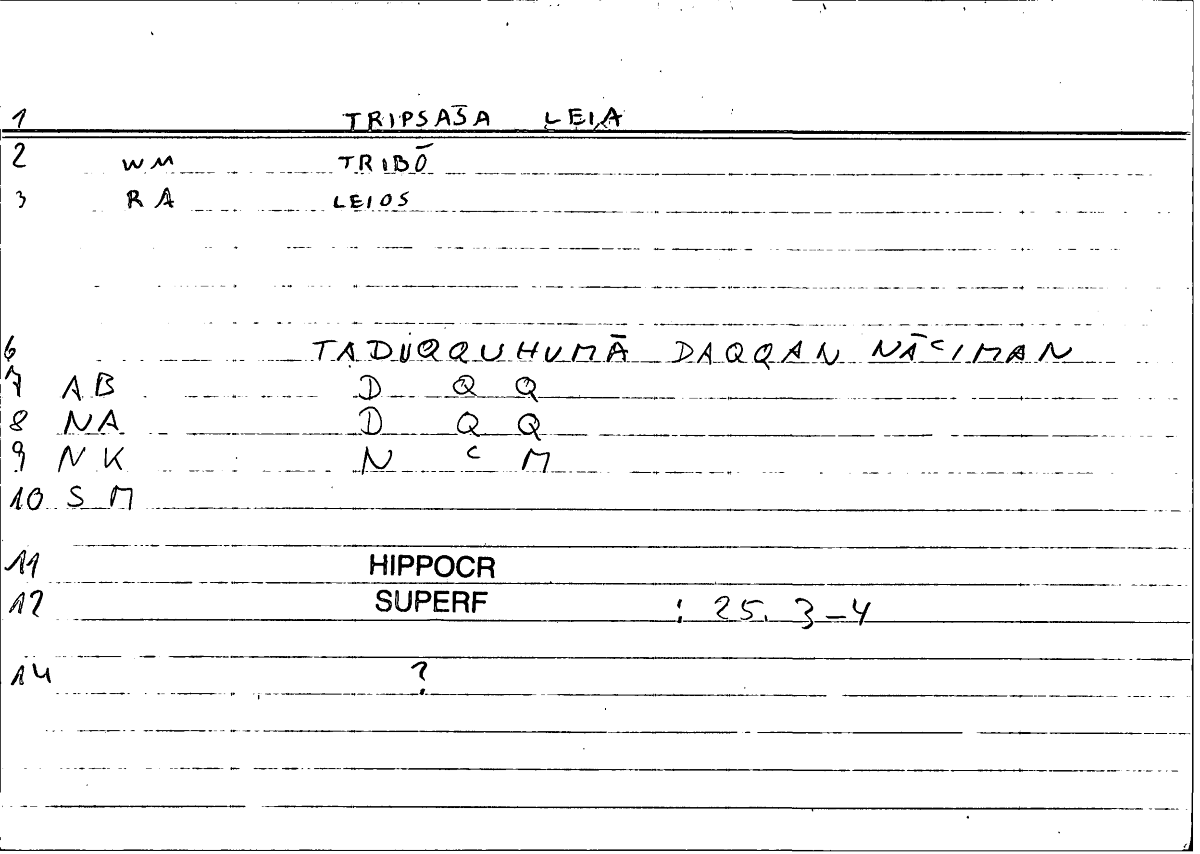 1 TRIPSAS̄A LEIA
2 WM TRIBŌ
3 RA LEIOS
6 TADUQQUHUMĀ DAQQAN NĀᶜIMAN
7 AB D Q Q
8 NA D Q Q
9 NK N ᶜ M
10 SM
11 HIPPOCR
12 SUPERF : 25. 3-4
14 ?